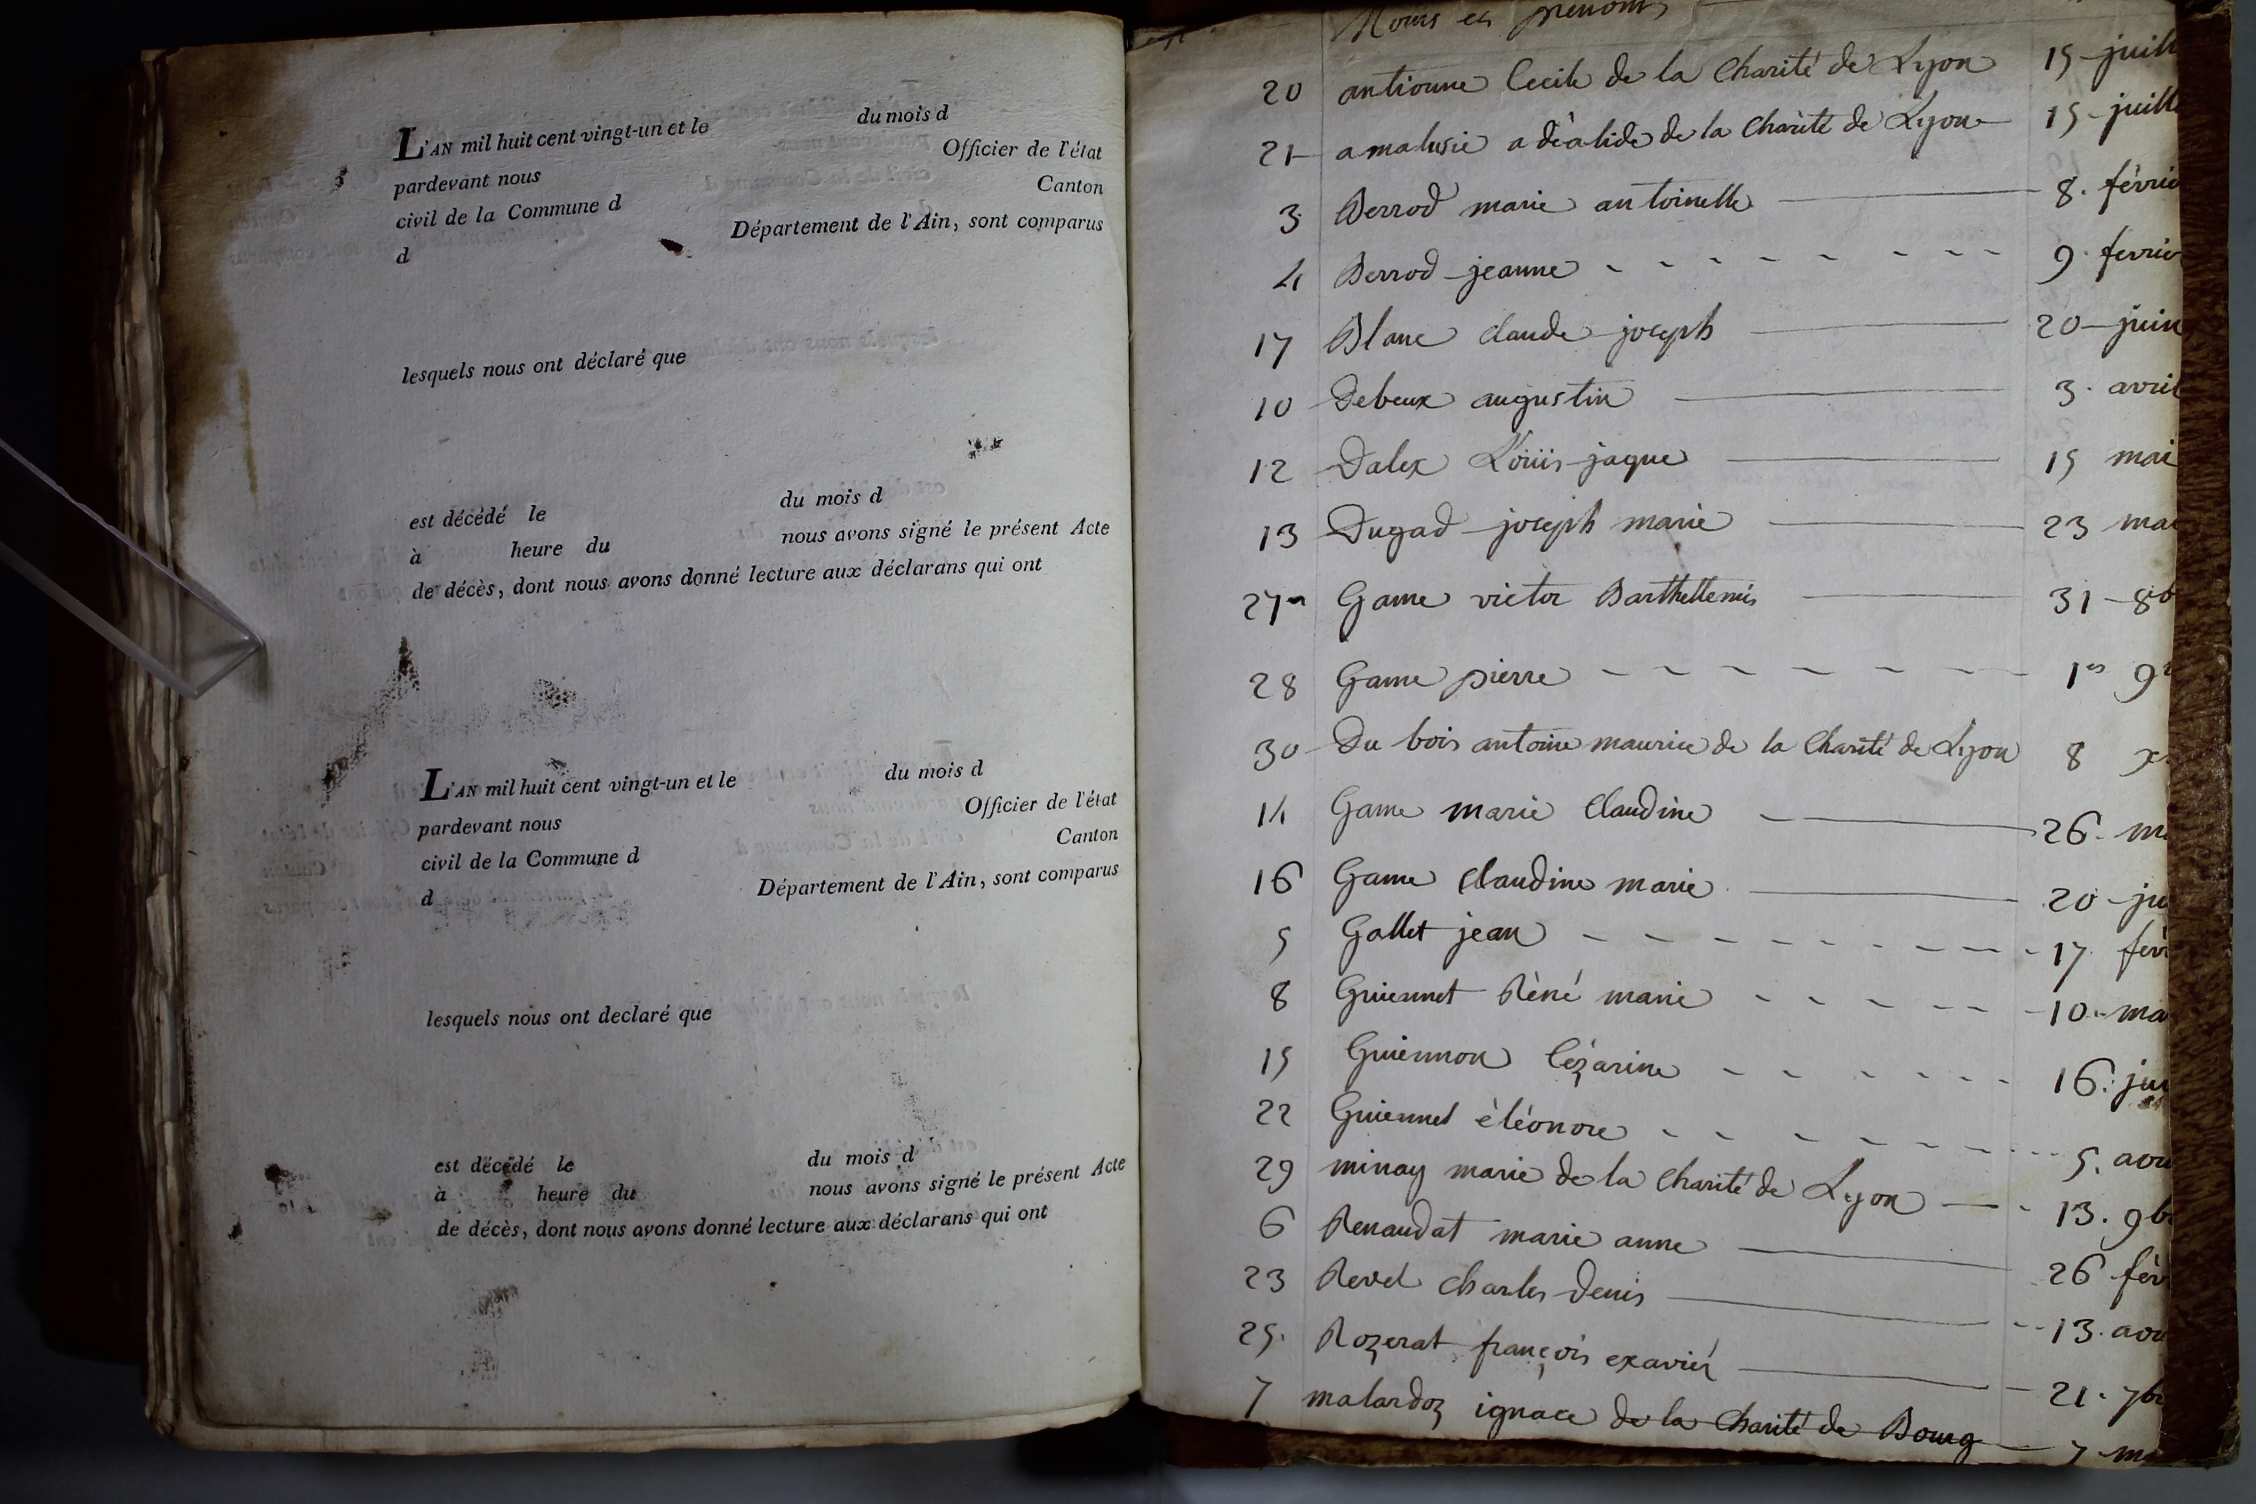 L'AN mil huit cent vingt-un et le du mois d
pardevant nous Officier de l'état
civil de la Commune d Canton
d Département de l'Ain, sont comparus
lesquels nous ont déclaré que
est décédé le du mois d
à heure du nous avons signé le présent Acte
de décès, dont nous avons donné lecture aux déclarans qui ont
L'AN mil huit cent vingt-un et le du mois d
pardevant nous Officier de l'état
civil de la Commune d Canton
d Département de l'Ain, sont comparus
lesquels nous ont declaré que
est décédé le du mois d
à heure du nous avons signé le présent Acte
de décès, dont nous avons donné lecture aux déclarans qui ont
Noms et prenoms
20 antioune Cecile de la Charité de Lyon 15 juill
21 amalusie adèalide de la Charité de Lyon 15 juill
3 Berrod marie antoinette 8. févrie
4 Berrod jeanne 9. fevrie
17 Blanc claude joseph 20 juin
10 Debeux augustin 3. avril
12 Dalex Louis jaque 15 mai
13 Dugad joseph marie 23 mai
27 Game victor Barthellemis 31 8b
28 Game pierre 1er 9
30 Du bois antoine maurice de la Charité de Lyon 8 x
14 Game marie Claudine 26. m
16 Game Claudine marie 20 ju
5 Gallet jean 17. fév
8 Guiennet Réné marie 10. ma
15 Guiennon Cézarine 16. jui
22 Guiennet éléonore 5. aou
29 minay marie de la Charité de Lyon 13. 9b
6 Renaudat marie anne 26 fév
23 Revel charles Denis 13. aou
25. Rozerat françois exavier 21. 7b
7 malardoz ignace de la Charité de Bourg 7 ma